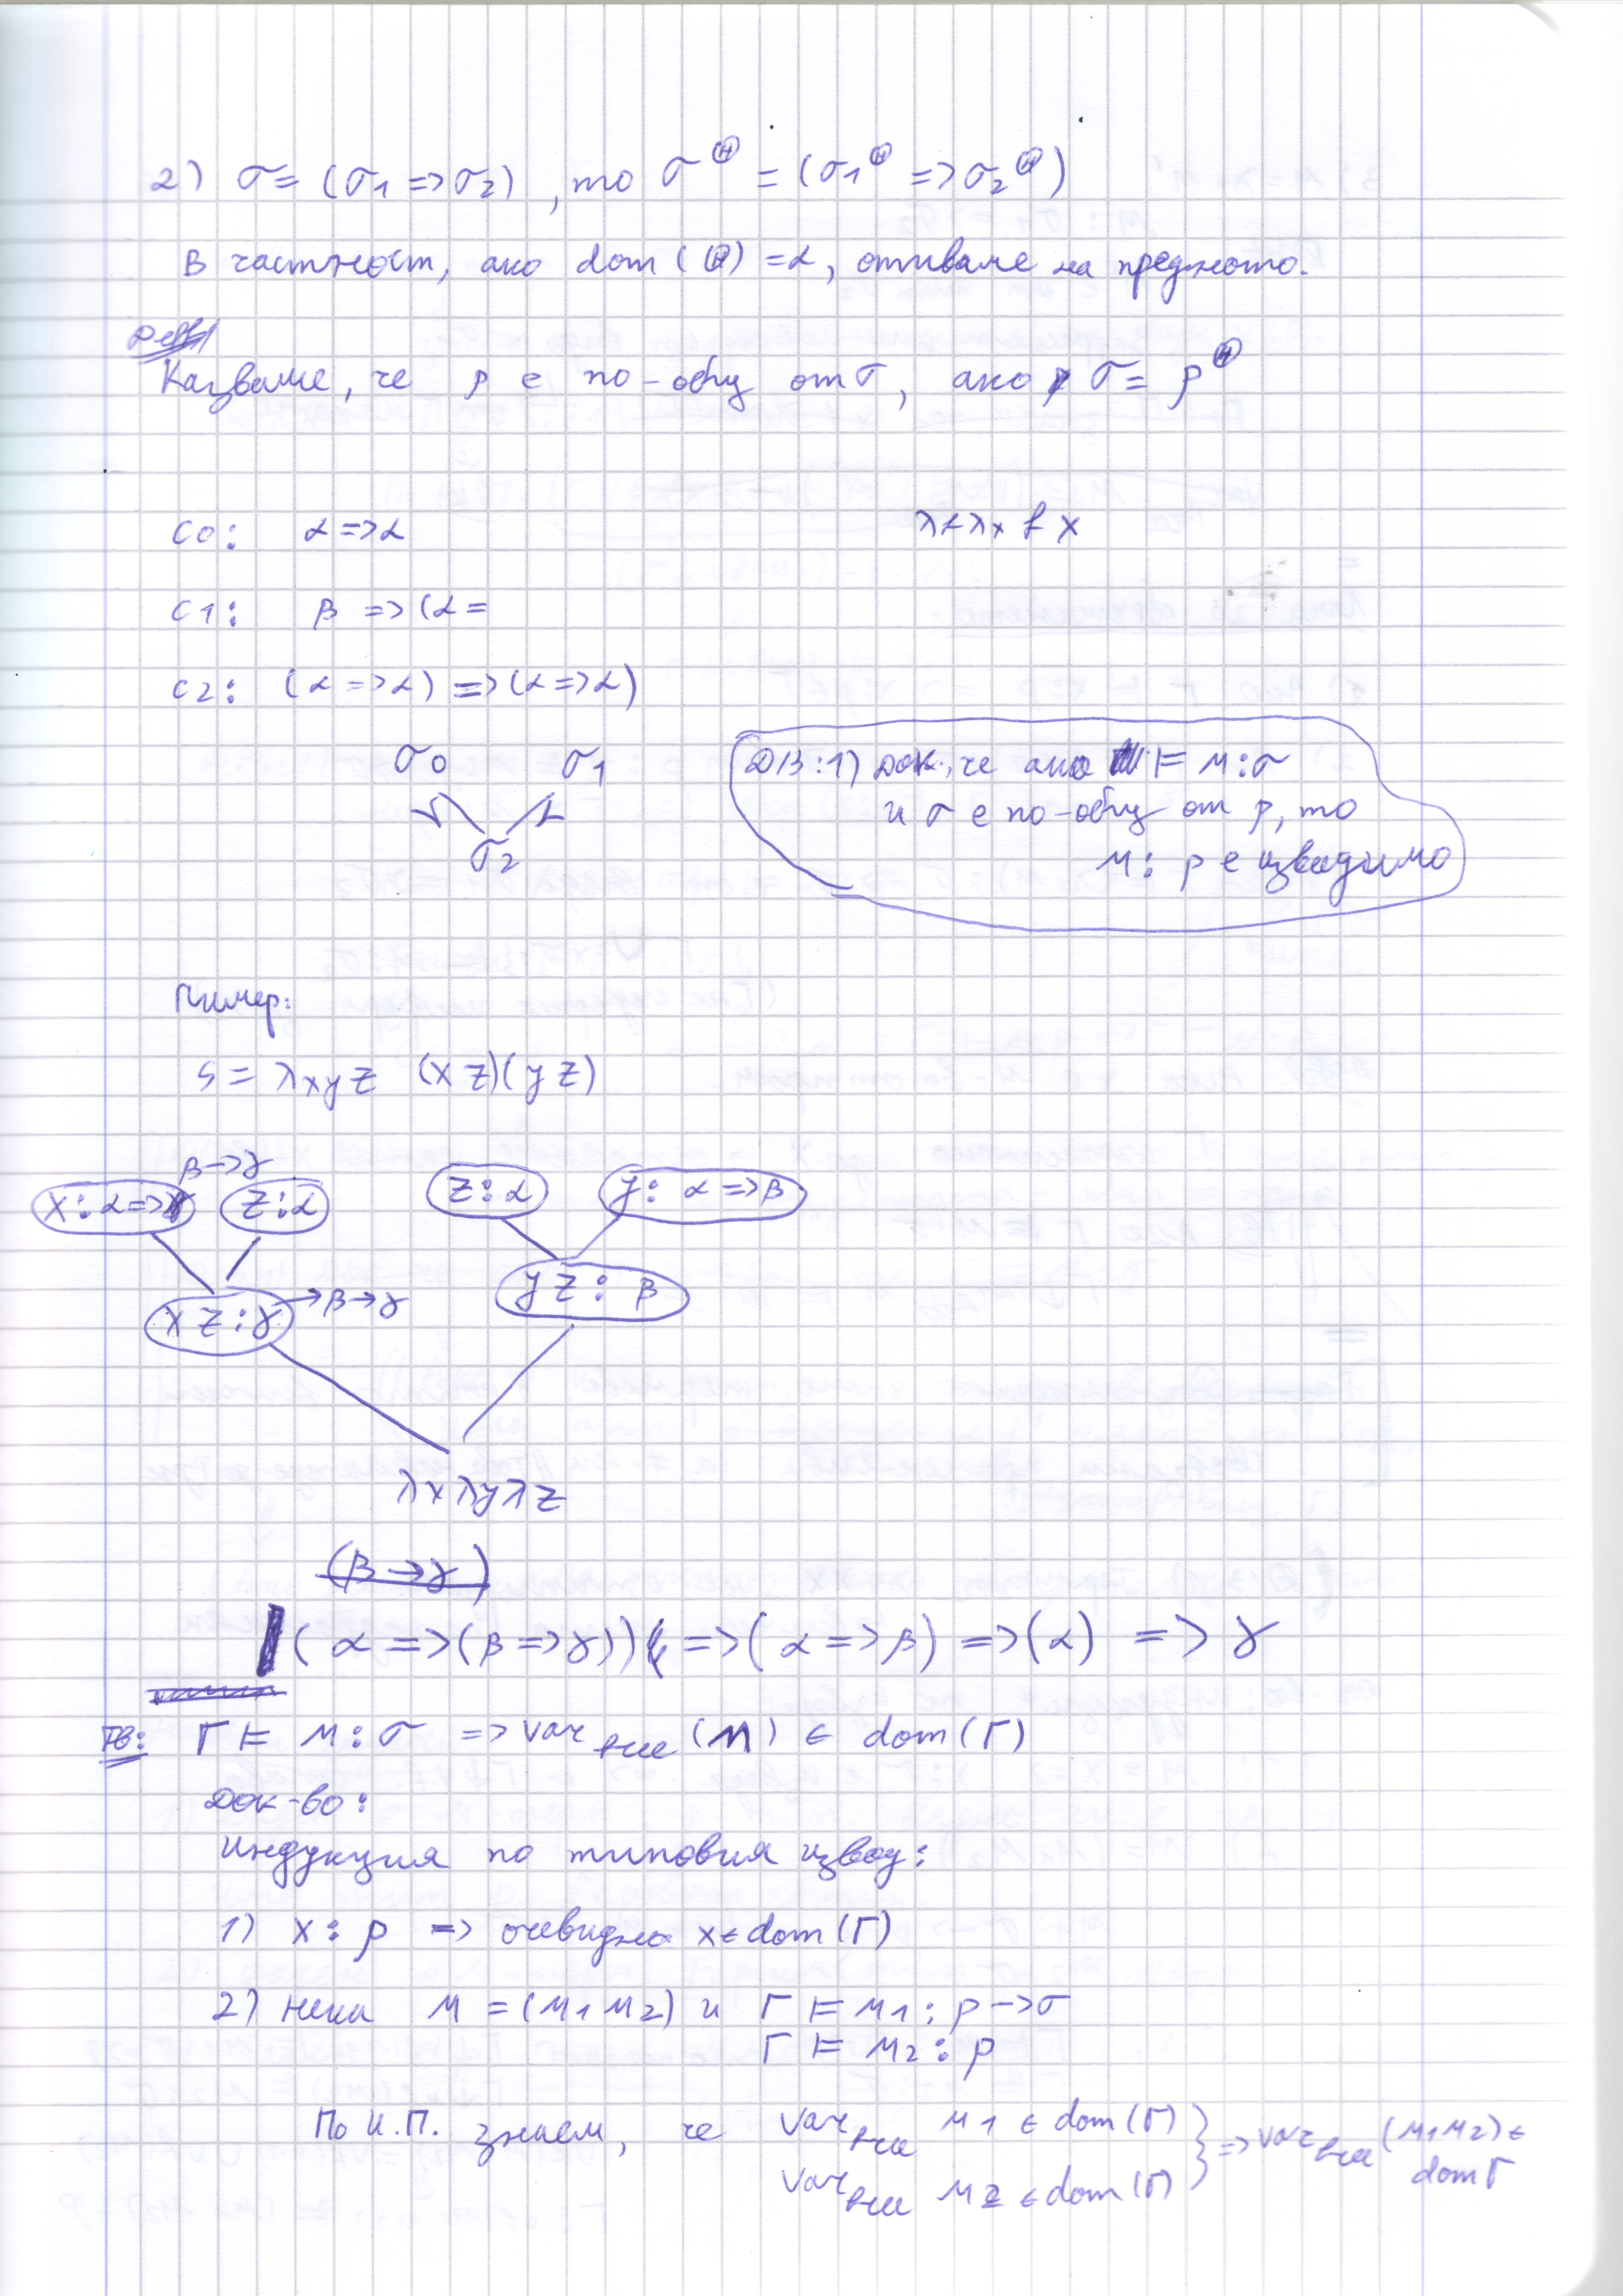 2) σ = (σ1 => σ2), то σ^Ⓗ = (σ1^Ⓗ => σ2^Ⓗ)
В частност, ако dom(Ⓗ) = α, отиваме на предното.
Деф
Казваме, че ρ е по-общ от σ, ако σ = ρ^Ⓗ
c0: α => α λfλx f x
c1: β => (α =
c2: (α => α) => (α => α)
σ0 σ1
σ2
ДВ: 1) Док., че ако ⊨ M:σ
и σ е по-общ от ρ, то
M: ρ е изводимо
Пимер:
S = λxyz (xz)(yz)
β→γ
x: α => z: α z: α y: α => β
xz: γ → β→γ yz: β
λxλyλz
(β→γ)
(α => (β => γ)) => (α => β) => (α) => γ
Тв: Γ ⊨ M:σ => var все (M) ∈ dom(Γ)
Док-во:
Индукция по типовия извод:
1) x: ρ => очевидно x ∈ dom(Γ)
2) Нека M = (M1 M2) и Γ ⊨ M1: ρ → σ
Γ ⊨ M2: ρ
По И.П. знаем, че var все M1 ∈ dom(Γ) } => var все (M1M2) ∈
var все M2 ∈ dom(Γ) dom Γ